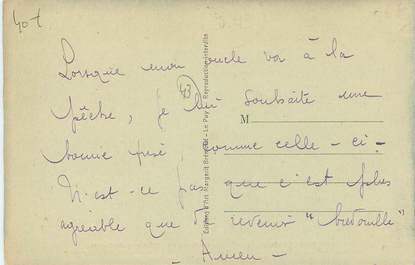 40 f
Lorsque mon oncle va à la
pêche, je lui souhaite une
43
M
bonne prise comme celle-ci -
N'est-ce pas que c'est plus
agréable que de revenir "bredouille"
- Amen -
Margerit Brémond - Le Puy Reproduction interdite